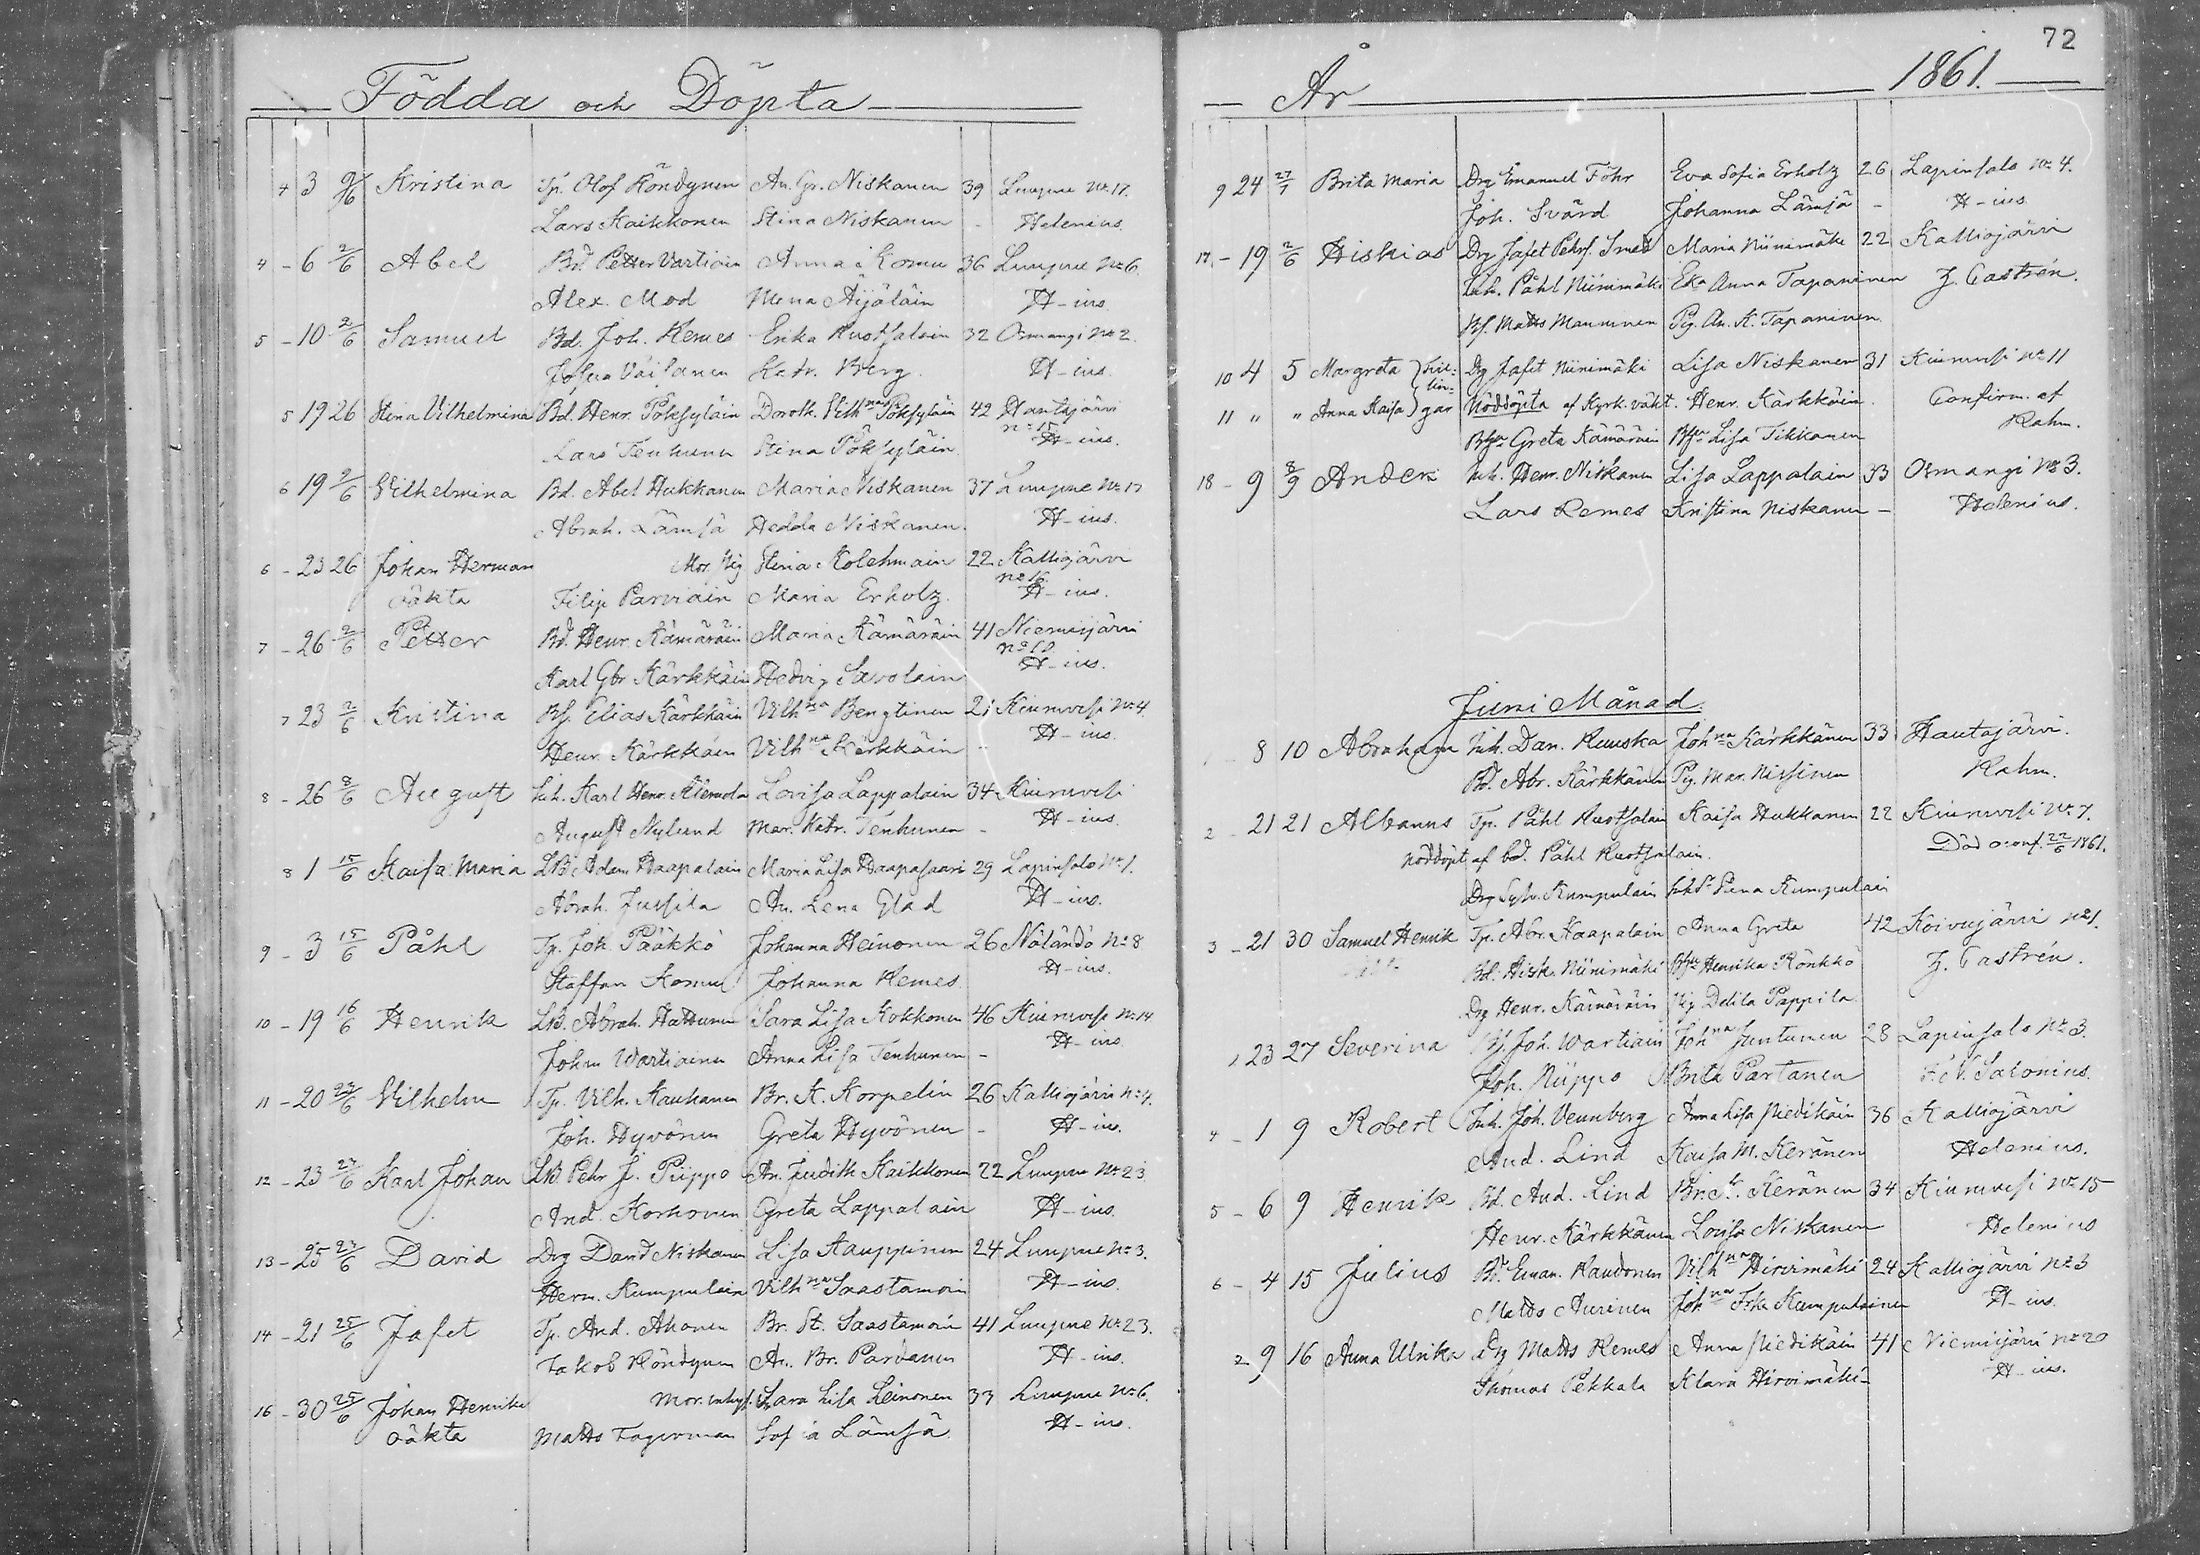 Födda och Döpta
4 3 9/6 Kristina Tp. Olof Röndynen An. Gr. Niskanen 39 Luupue No 17.
Lars Kaikkonen Stina Niskanen - Helenius.
4 - 6 2/6 Abel Bd. Petter Vartiain Anna Komu 36 Luupue No 6.
Alex. Mod Mena Äijäläin H-ius
5 - 10 2/6 Samuel Bd. Joh. Remes Erika Ruotsalain 32 Osmangi No 2.
Josua Väisänen Katr. Berg. H-ius.
5 19 26 Stina Vilhelmina Bd. Henr. Pöksyläin Doroth. Vilhna Pöksyläin 42 Hautajärvi
no 15
Lars Tenhunen Stina Pöksyläin H-ius.
6 19 2/6 Vilhelmina Bd. Abel Hukkanen Maria Niskanen 37 Luupue No 17
Abrah. Lämsä Hedda Niskanen. H-ius.
6 - 23 26 Johan Herman Mor. Pig Stina Kolehmain 22 Kalliojärvi
no 16
oäkta Filip Parviain Maria Erholz. H-ius.
7 - 26 2/6 Petter Bd. Henr. Kämäräin Maria Kämäräin 41 Niemisjärvi
no 10.
Karl Gbr Kärkkäin Hedvig Savolain H-ius.
7 23 2/6 Kristina Bs. Elias Kärkkäin Vilhna Bengtinen 21 Kiuruvesi No 4.
Henr. Kärkkäin Vilhna Kärkkäin - H-ius.
8 - 26 8/6 August Inh. Karl Henr. Klemola Lovisa Lappalain 34 Kiuruvesi
August Nylund Mar. Katr. Tenhunen - H-ius.
8 1 15/6 Kaisa Maria LB. Adam Haapalain Maria Lisa Haapasaari 29 Lapinsalo No 1.
Abrah. Jussila An. Lena Glad H-ius.
9 - 3 15/6 Påhl Tp. Joh. Pääkkö Johanna Heinonen 26 Näländö No 8
Staffan Komu Johanna Remes. H-ius.
10 - 19 16/6 Henrik LB. Abrah. Hattunen Sara Lisa Kokkonen 46 Kiuruvesi No 14
Johan Wartiainen Anna Lisa Tenhunen - H-ius.
11 - 20 23/6 Vilhelm Tp. Vilh. Kauhanen Br. K. Korpelin 26 Kalliojärvi No 4.
Joh. Hyvönen Greta Hyvönen - H-ius.
12 - 23 23/6 Karl Johan LB. Pehr J. Piippo An. Judith Kaikkonen 22 Luupue No 23
And. Korhonen Greta Lappalain H-ius.
13 - 25 23/6 David Drg David Niskanen Lisa Kauppinen 24 Luupue No 3.
Herm. Kumpulain Vilhna Saastamoin H-ius.
14 - 21 25/6 Jafet Tp. And. Ahonen Br. St. Saastamoin 41 Luupue No 23.
Jakob Röndynen An. Br. Pardanen H-ius.
16 - 30 25/6 Johan Henrik Mor. inhys. Sara Lisa Leinonen 33 Luupue No 6.
oäkta Matts Fagerman Sofia Lämsä H-ius.
År 1861. 72
9 24 27/7 Brita Maria Drg Emanuel Föhr Eva Sofia Erholz 26 Lapinsalo No 4.
Joh. Svärd Johanna Lämsä - H-ius.
17 - 19 2/6 Hiskias Drg Jafet Pehrs. Smed Maria Niinimäki 22 Kalliojärvi
Inh. Påhl Niinimäki Eka Anna Tapaninen J. Castrén.
Bs. Matts Manninen Pig. An. K. Tapaninen
10 4 5 Margreta } tvil- Dg Jafet Niinimäki Lisa Niskanen 31 Kiuruvesi No 11
lin-
11 " " Anna Kaisa } gar Nöddöpta af Kyrk. väkt. Henr. Kärkkäin. Confirm. af
Bhn Greta Kämäräin Bhn Lisa Tikkanen Rahm.
18 - 9 8/9 Anders Inh. Henr. Niskanen Lisa Lappalain 33 Osmangi No 3.
Lars Remes Kristina Niskanen - Helenius.
Juni Månad.
1 - 8 10 Abraham Inh. Dan. Ruuska Johna Kärkkänen 33 Hautajärvi.
Bd. Abr. Kärkkänen Pig. Mar. Nissinen Rahm.
2 - 21 21 Albanus Tp. Påhl Ruotsalain Kaisa Hukkanen 22 Kiuruvesi No 7.
Nöddöpt af bd. Påhl Ruotsalain. Död o. conf. 22/6 1861.
Drg Sylv. Kumpulain Kumpulain
3 - 21 30 Samuel Henrik Tp. Abr. Haapalain Anna Greta 42 Koivujärvi No 1.
Bd. Hisk. Niinimäki Henrika Rönkkö J. Castrén.
Drg Henr. Kämäräin Pig Delila Pappila
1 23 27 Severina Bs. Joh. Wartiain Johna Juntunen 28 Lapinsalo No 3.
Joh. Niippo Brita Partanen Salonius.
4 - 1 9 Robert Inh. Joh. Vennberg Anna Lisa Miedikäin 36 Kalliojärvi
And. Lind Kaisa M. Keränen Helenius.
5 - 6 9 Henrik Bd. And. Lind Br. K. Keränen 34 Kiuruvesi No 15
Henr. Kärkkänen Lovisa Niskanen Helenius
6 - 4 15 Julius Bd. Eman. Raudonen Vilhna Hirvimäki 24 Kalliojärvi No 3
Matts Aurinen Johna Frka Kumpulainen H-ius.
2 9 16 Anna Ulrika Dg Matts Remes Anna Miedikäin 41 Niemisjärvi No 20
Thomas Pekkala Klara Hirvimäki- H-ius.